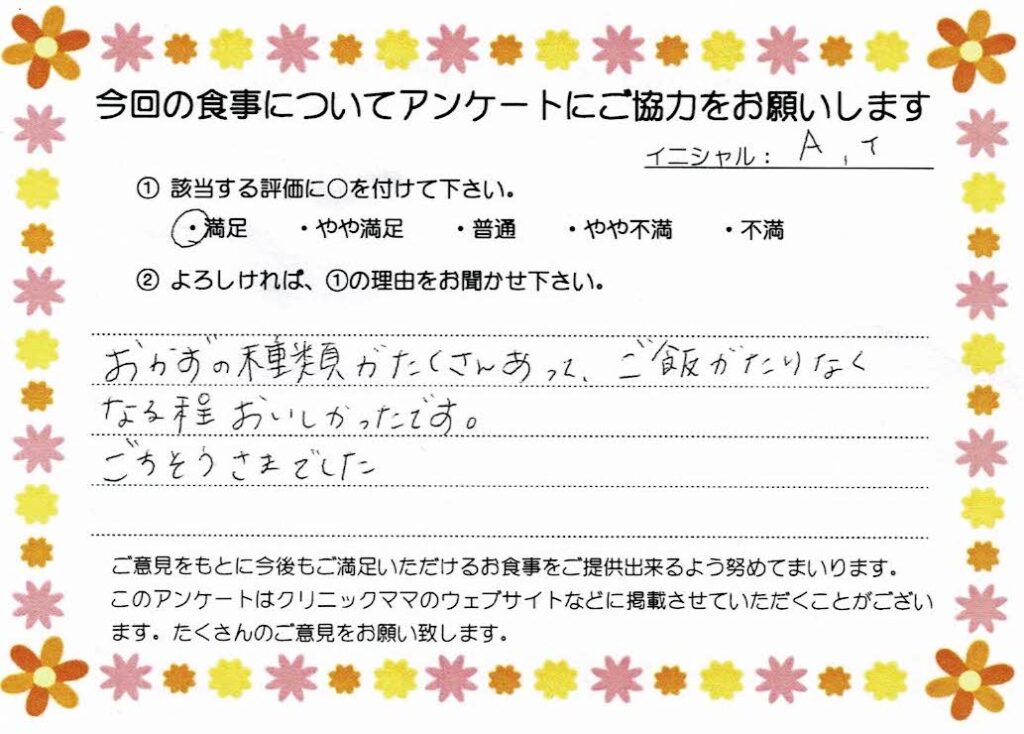 今回の食事についてアンケートにご協力をお願いします
イニシャル： A , T
① 該当する評価に○を付けて下さい。
・満足 ・やや満足 ・普通 ・やや不満 ・不満
② よろしければ、①の理由をお聞かせ下さい。
おかずの種類がたくさんあって、ご飯がたりなく
なる程おいしかったです。
ごちそうさまでした
ご意見をもとに今後もご満足いただけるお食事をご提供出来るよう努めてまいります。
このアンケートはクリニックママのウェブサイトなどに掲載させていただくことがござい
ます。たくさんのご意見をお願い致します。